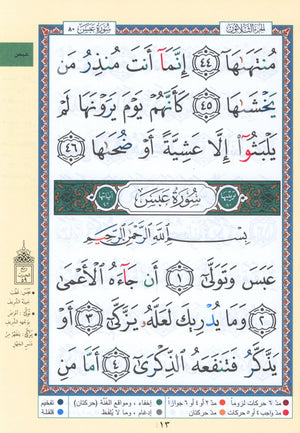 الجزء الثلاثون
سورة عبس ٨٠
مُنتَهَىٰهَآ ﴿٤٤﴾ إِنَّمَآ أَنتَ مُنذِرُ مَن
يَخْشَىٰهَا ﴿٤٥﴾ كَأَنَّهُمْ يَوْمَ يَرَوْنَهَا لَمْ
يَلْبَثُوٓا۟ إِلَّا عَشِيَّةً أَوْ ضُحَىٰهَا ﴿٤٦﴾
سُورَةُ عَبَسَ
بِسْمِ ٱللَّهِ ٱلرَّحْمَٰنِ ٱلرَّحِيمِ
عَبَسَ وَتَوَلَّىٰٓ ﴿١﴾ أَن جَآءَهُ ٱلْأَعْمَىٰ
﴿٢﴾ وَمَا يُدْرِيكَ لَعَلَّهُۥ يَزَّكَّىٰٓ ﴿٣﴾ أَوْ
يَذَّكَّرُ فَتَنفَعَهُ ٱلذِّكْرَىٰٓ ﴿٤﴾ أَمَّا مَنِ
مدّ ٦ حركات لزوماً
مدّ ٢ أو ٤ أو ٦ جوازاً
إخفاء، ومواقع الغُنَّة (حركتان)
تفخيم
مدّ واجب ٤ أو ٥ حركات
مدّ حركتان
إدغام، وما لا يُلفَظ
قلقلة
١٣